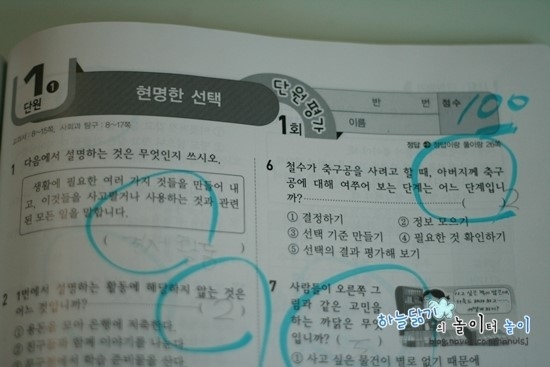 1 1
단원
현명한 선택
단원평가
1회
반 번 점수
이름
100
교과서 : 8~15쪽, 사회과 탐구 : 8~17쪽
정답과 풀이 26쪽
1 다음에서 설명하는 것은 무엇인지 쓰시오.
생활에 필요한 여러 가지 것들을 만들어 내
고, 이것들을 사고팔거나 사용하는 것과 관련
된 모든 일을 말합니다.
( )
2 1번에서 설명하는 활동에 해당하지 않는 것은
어느 것입니까? ( 2 )
① 용돈을 모아 은행에 저축한다.
② 친구들과 함께 이야기를 나눈다.
③ 친구들에게 학습 준비물을 산다
6 철수가 축구공을 사려고 할 때, 아버지께 축구
공에 대해 여쭈어 보는 단계는 어느 단계입니
까? ( 2 )
① 결정하기 ② 정보 모으기
③ 선택 기준 만들기 ④ 필요한 것 확인하기
⑤ 선택의 결과 평가해 보기
7 사람들이 오른쪽 그
림과 같은 고민을
하는 까닭은 무엇
입니까? ( )
① 사고 싶은 물건이 별로 없기 때문에
하늘닮기의 놀이터 놀이